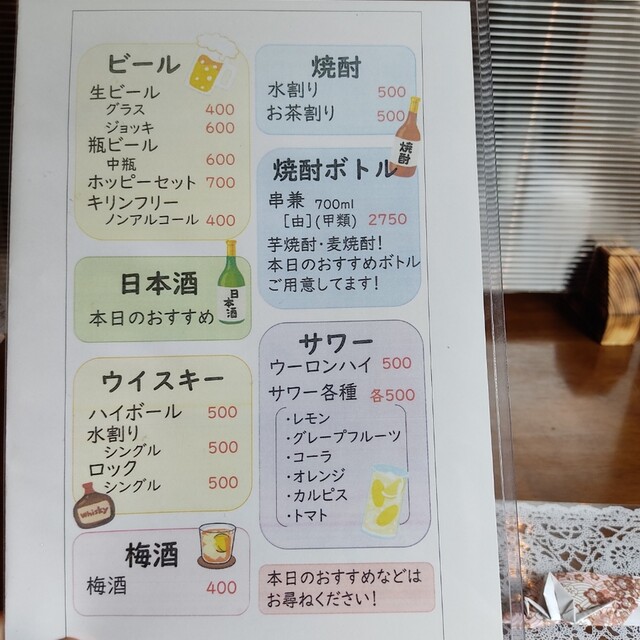 ビール
生ビール
グラス 400
ジョッキ 600
瓶ビール
中瓶 600
ホッピーセット 700
キリンフリー
ノンアルコール 400
日本酒
本日のおすすめ
日本酒
ウイスキー
ハイボール 500
水割り
シングル 500
ロック
シングル 500
Whisky
梅酒
梅酒 400
焼酎
水割り 500
お茶割り 500
焼酎
焼酎ボトル
串兼 700ml
[由](甲類) 2750
芋焼酎・麦焼酎!
本日のおすすめボトル
ご用意してます!
サワー
ウーロンハイ 500
サワー各種 各500
・レモン
・グレープフルーツ
・コーラ
・オレンジ
・カルピス
・トマト
本日のおすすめなどは
お尋ねください!